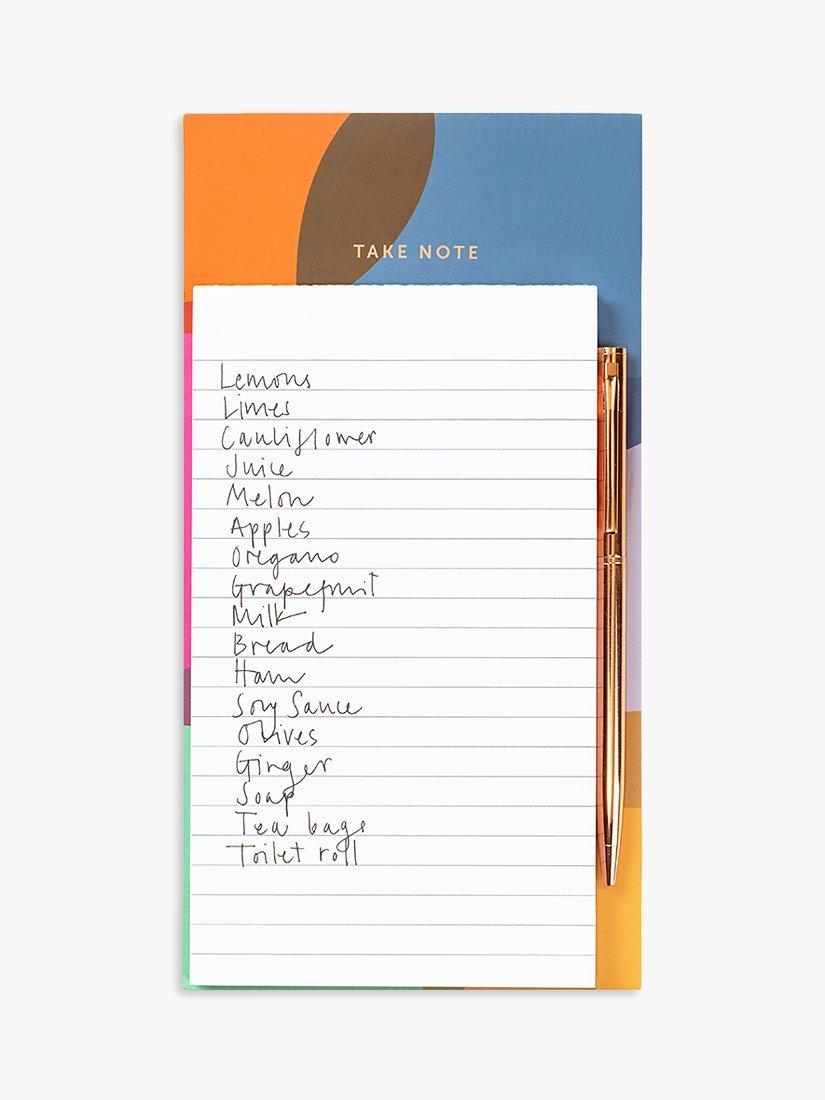 TAKE NOTE
Lemons
Limes
Cauliflower
Juice
Melon
Apples
Oregano
Grapefruit
Milk
Bread
Ham
Soy Sauce
Olives
Ginger
Soap
Tea bags
Toilet roll